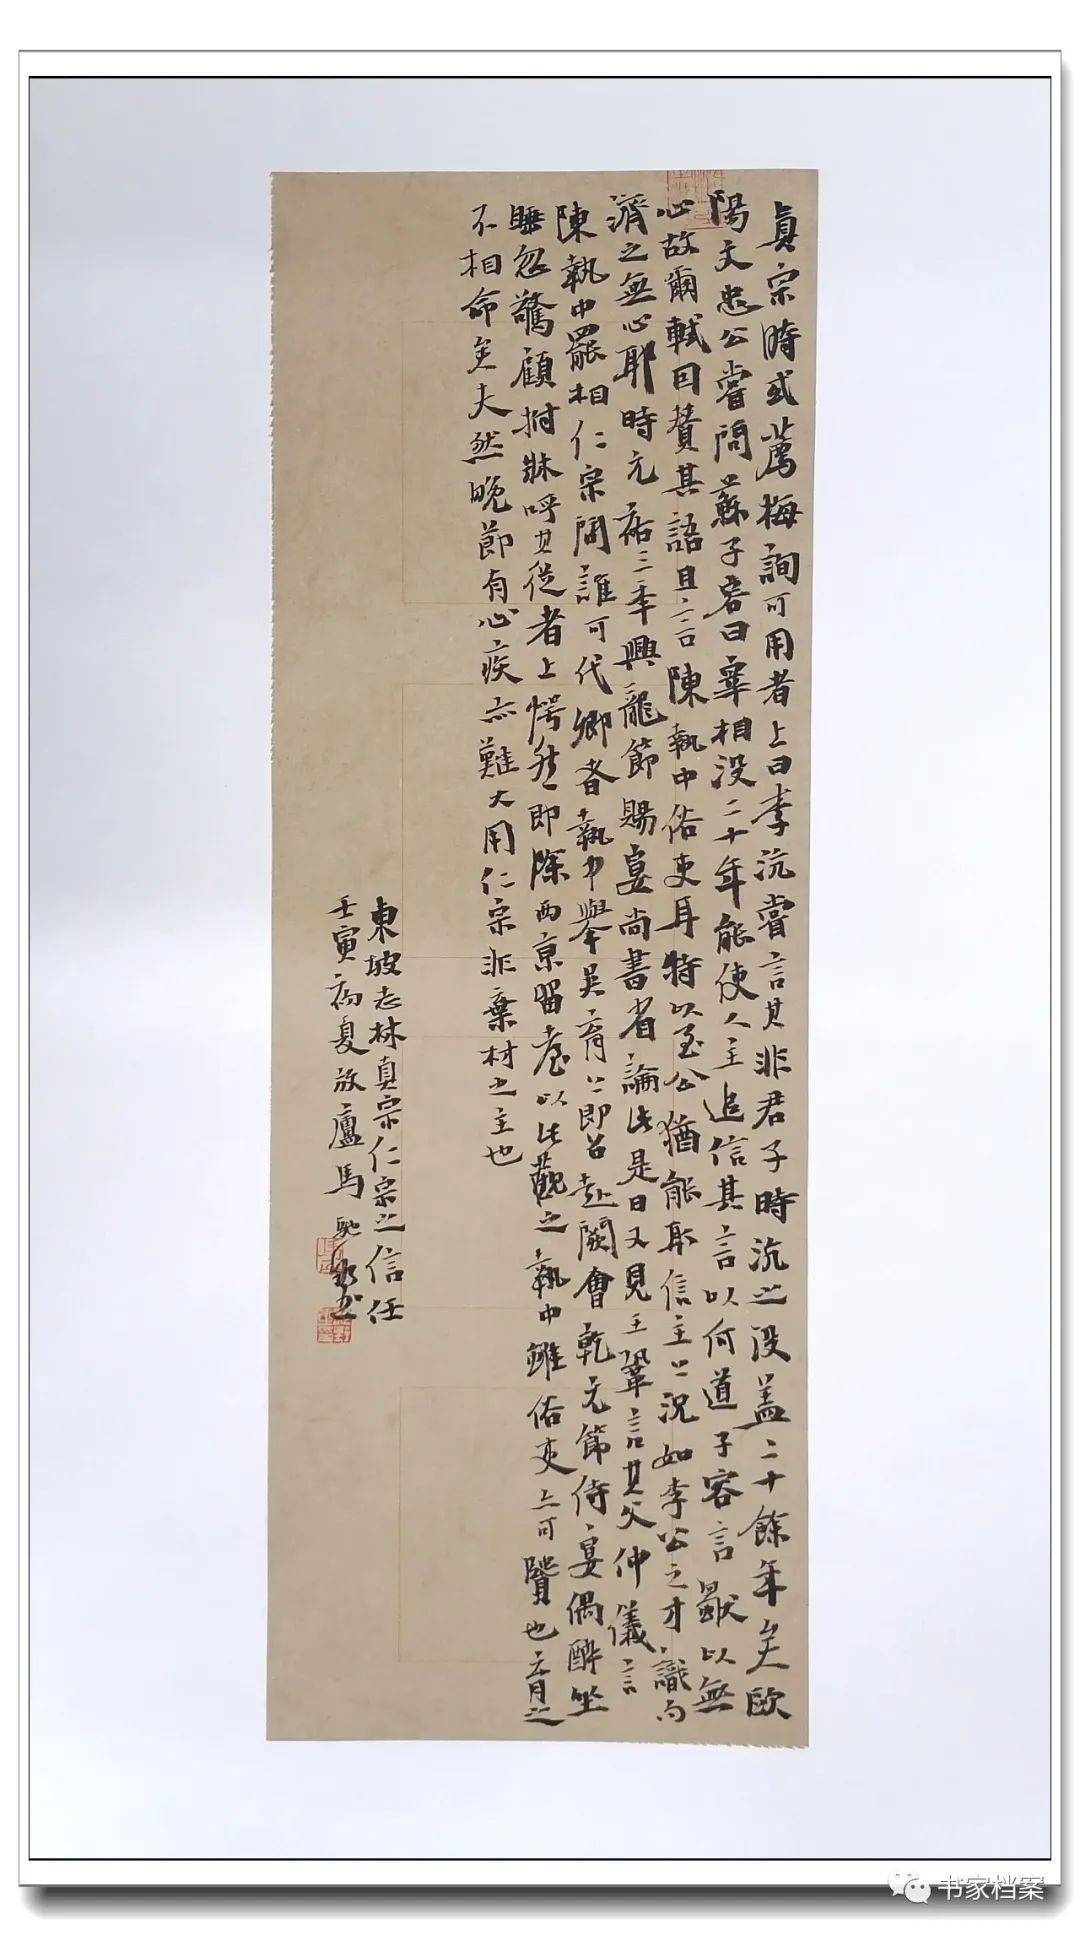 真宗時或薦梅詢可用者上曰李沆嘗言其非君子時沆之没蓋二十餘年矣歐
陽文忠公嘗問蘇子容曰宰相没二十年能使人主追信其言以何道子容言獸以無
心故爾軾因贊其語且言陳執中俗吏耳特以至公猶能取信主上況如李公之才識而
濟之無心耶時元祐三年興龍節賜宴尚書省論此是日又見王鞏言其父仲儀言
陳執中罷相仁宗問誰可代卿者執中舉吳育上即召赴闕會乾元節侍宴偶醉坐
睡忽驚顧拊牀呼其從者上愕然即除西京留臺以此觀之執中雖俗吏亦可賢也育之
不相命矣夫然晚節有心疾亦難大用仁宗非棄材之主也
東坡志林真宗仁宗之信任
壬寅初夏放廬馬馳
书家档案